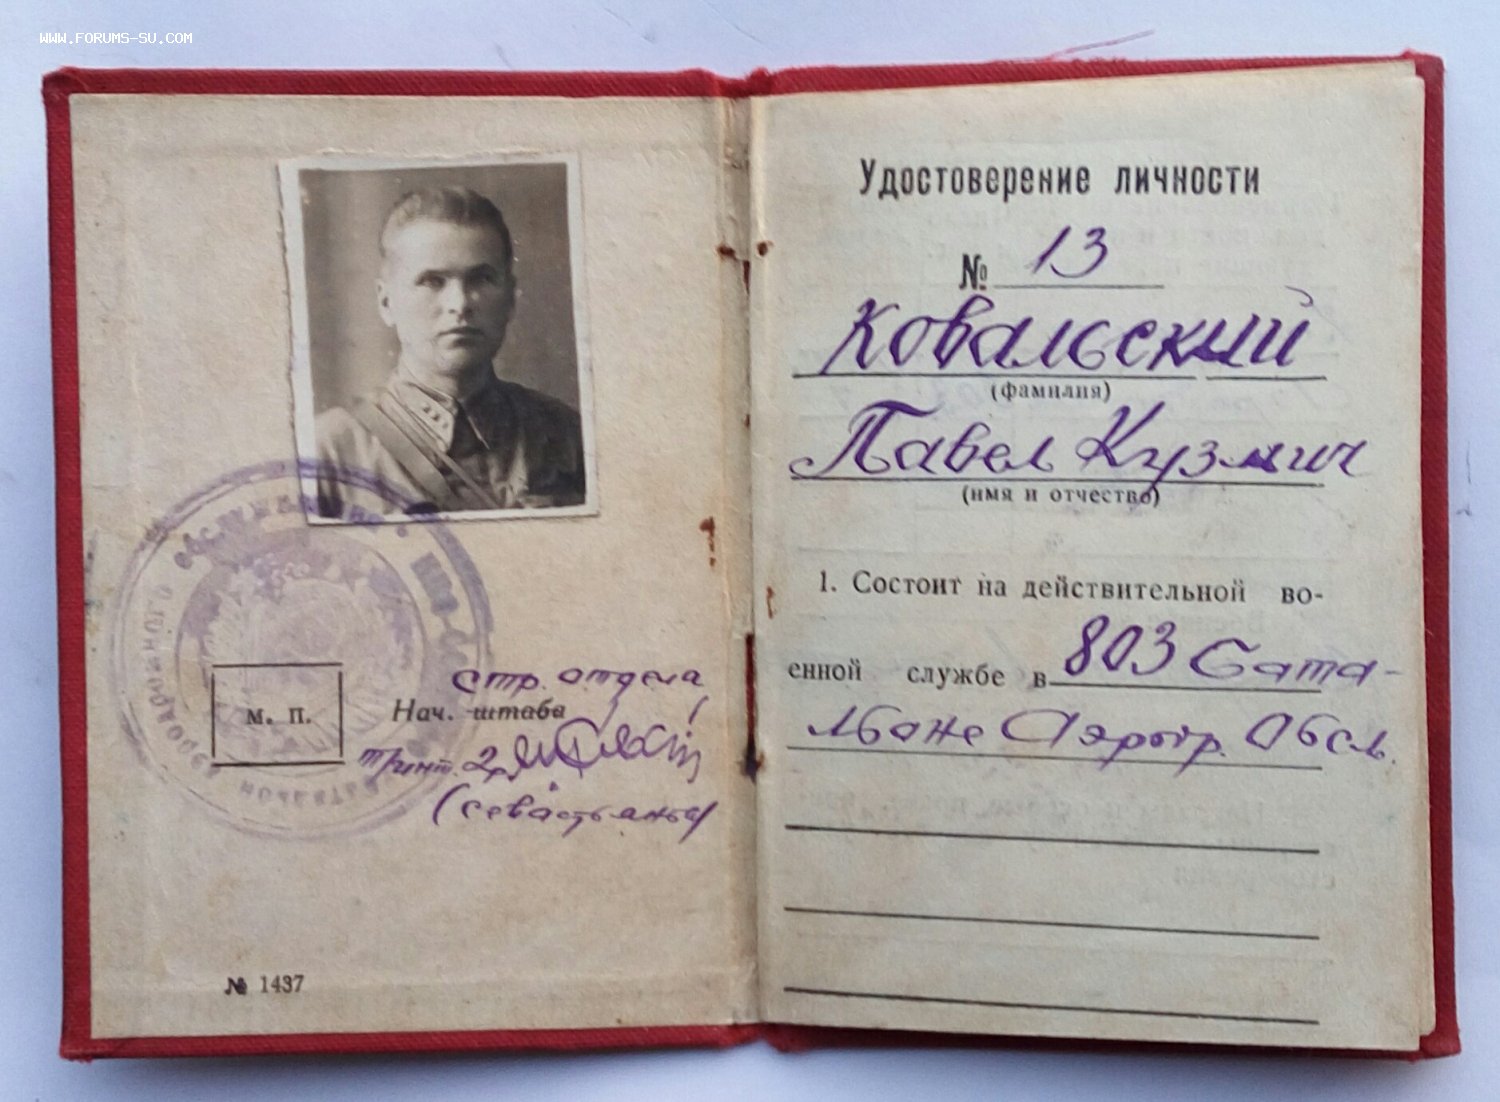 WWW.FORUMS-SU.COM
аэродромного обслуживания
батальон
М. П.
стр. отдела
Нач. штаба
(Севастьянов)
№ 1437
Удостоверение личности
№ 13
Ковальский
(фамилия)
Павел Кузмич
(имя и отчество)
1. Состоит на действительной во-
енной службе в 803 Бата-
льоне Аэродр. Обсл.